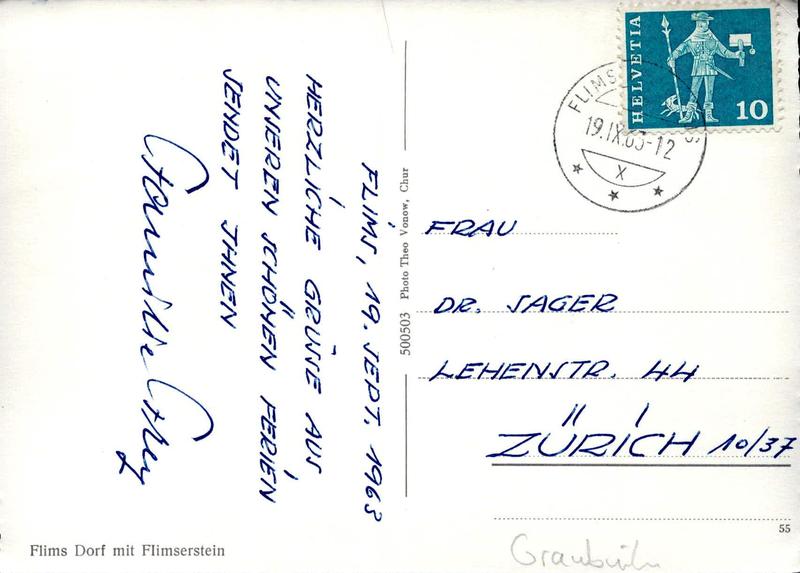 FLIMS, 19. SEPT. 1963
HERZLICHE GRÜSSE AUS
UNSEREN SCHÖNEN FERIEN
SENDET IHNEN
Familie
Flims Dorf mit Flimserstein
500503 Photo Theo Vonow, Chur
HELVETIA
10
FLIMS
19.IX.63-12
X
FRAU
DR. SAGER
LEHENSTR. 44
ZÜRICH 10/37
55